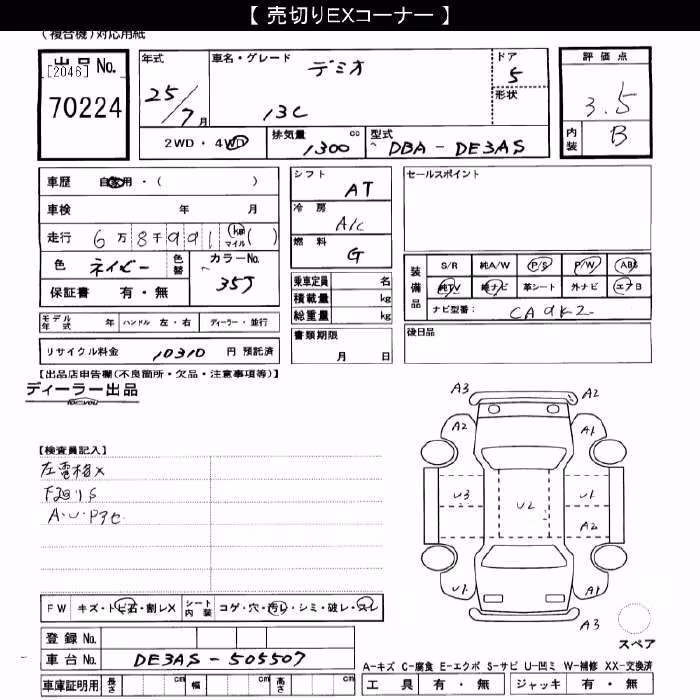 【 売切りEXコーナー 】
(複合機)対応用紙
出品No.
[2046]
70224
年式
25/7月
車名・グレード
デミオ
13C
ドア
5
形状
2WD・4WD
排気量 1300 cc
型式 DBA-DE3AS
評価点
3.5
内装 B
車歴 自家用・( )
車検 年 月
走行 6万8千991 km マイル ( )
色 ネイビー 色替
カラーNo. 35J
保証書 有・無
モデル年式 年 ハンドル 左・右 ディーラー・並行
リサイクル料金 10310 円 預託済
シフト AT
冷房 A/C
燃料 G
乗車定員 名
積載量 kg
総重量 kg
書類期限
月 日
セールスポイント
装備品
S/R 純A/W P/S P/W ABS
純TV 純ナビ 革シート 外ナビ エアB
ナビ型番: CA9K2
後日品
【出品店申告欄(不良箇所・欠品・注意事項等)】
ディーラー出品
【検査員記入】
左電格×
A・U・Pアセ
FW キズ・トビ石・割レX シート内装 コゲ・穴・汚レ・シミ・破レ・スレ
登録No.
車台No. DE3AS-505507
車庫証明用 長さ cm 幅 cm 高さ cm
A3 A2
A2 A1
U3 U2 U1
A2
U1 A1
A3
スペア
A-キズ C-腐食 E-エクボ S-サビ U-凹ミ W-補修 XX-交換済
工具 有・無 ジャッキ 有・無